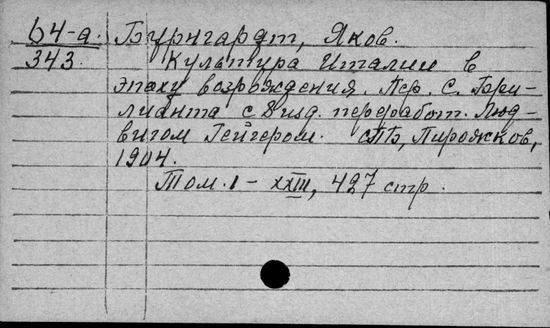 64-а. Бурнгардт, Яков.
343. Культура Италии в
эпоху возрождения. Пер. С. Бри-
лианта с 8 изд. переработ. Люд-
вигом Гейгером. СПБ, Пирожков,
1904.
Том. 1 - XXIII, 427 стр.